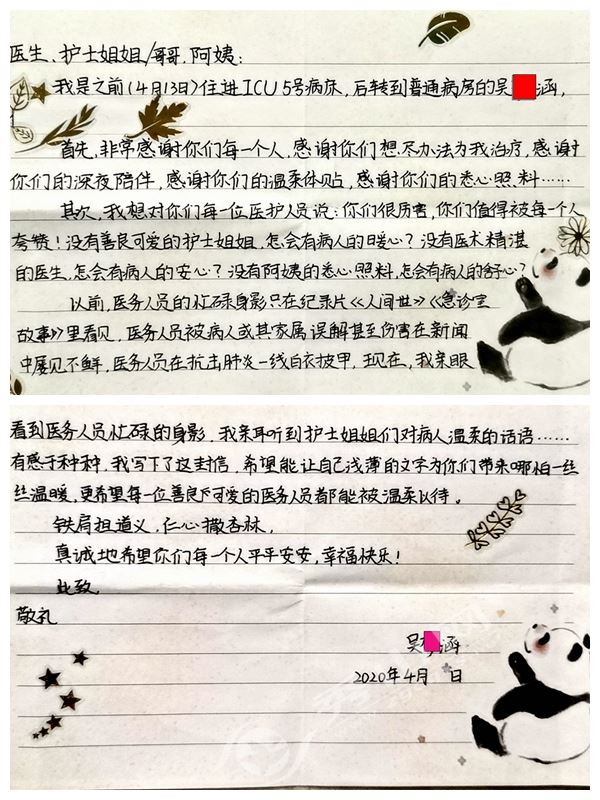 医生、护士姐姐/哥哥、阿姨:
我是之前(4月13日)住进ICU 5号病床,后转到普通病房的吴 涵,
首先,非常感谢你们每一个人,感谢你们想尽办法为我治疗,感谢
你们的深夜陪伴,感谢你们的温柔体贴,感谢你们的悉心照料……
其次,我想对你们每一位医护人员说:你们很厉害,你们值得被每一个人
夸赞!没有善良可爱的护士姐姐,怎会有病人的暖心?没有医术精湛
的医生,怎会有病人的安心?没有阿姨的悉心照料,怎会有病人的舒心?
以前,医务人员的忙碌身影只在纪录片《人间世》《急诊室
故事》里看见,医务人员被病人或其家属误解甚至伤害在新闻
中屡见不鲜,医务人员在抗击肺炎一线白衣披甲,现在,我亲眼
看到医务人员忙碌的身影,我亲耳听到护士姐姐们对病人温柔的话语……
有感于种种,我写下了这封信,希望能让自己浅薄的文字为你们带来哪怕一丝
丝温暖,更希望每一位善良可爱的医务人员都能被温柔以待。
铁肩担道义,仁心撒杏林,
真诚地希望你们每一个人平平安安,幸福快乐!
此致
敬礼
吴 涵
2020年4月 日